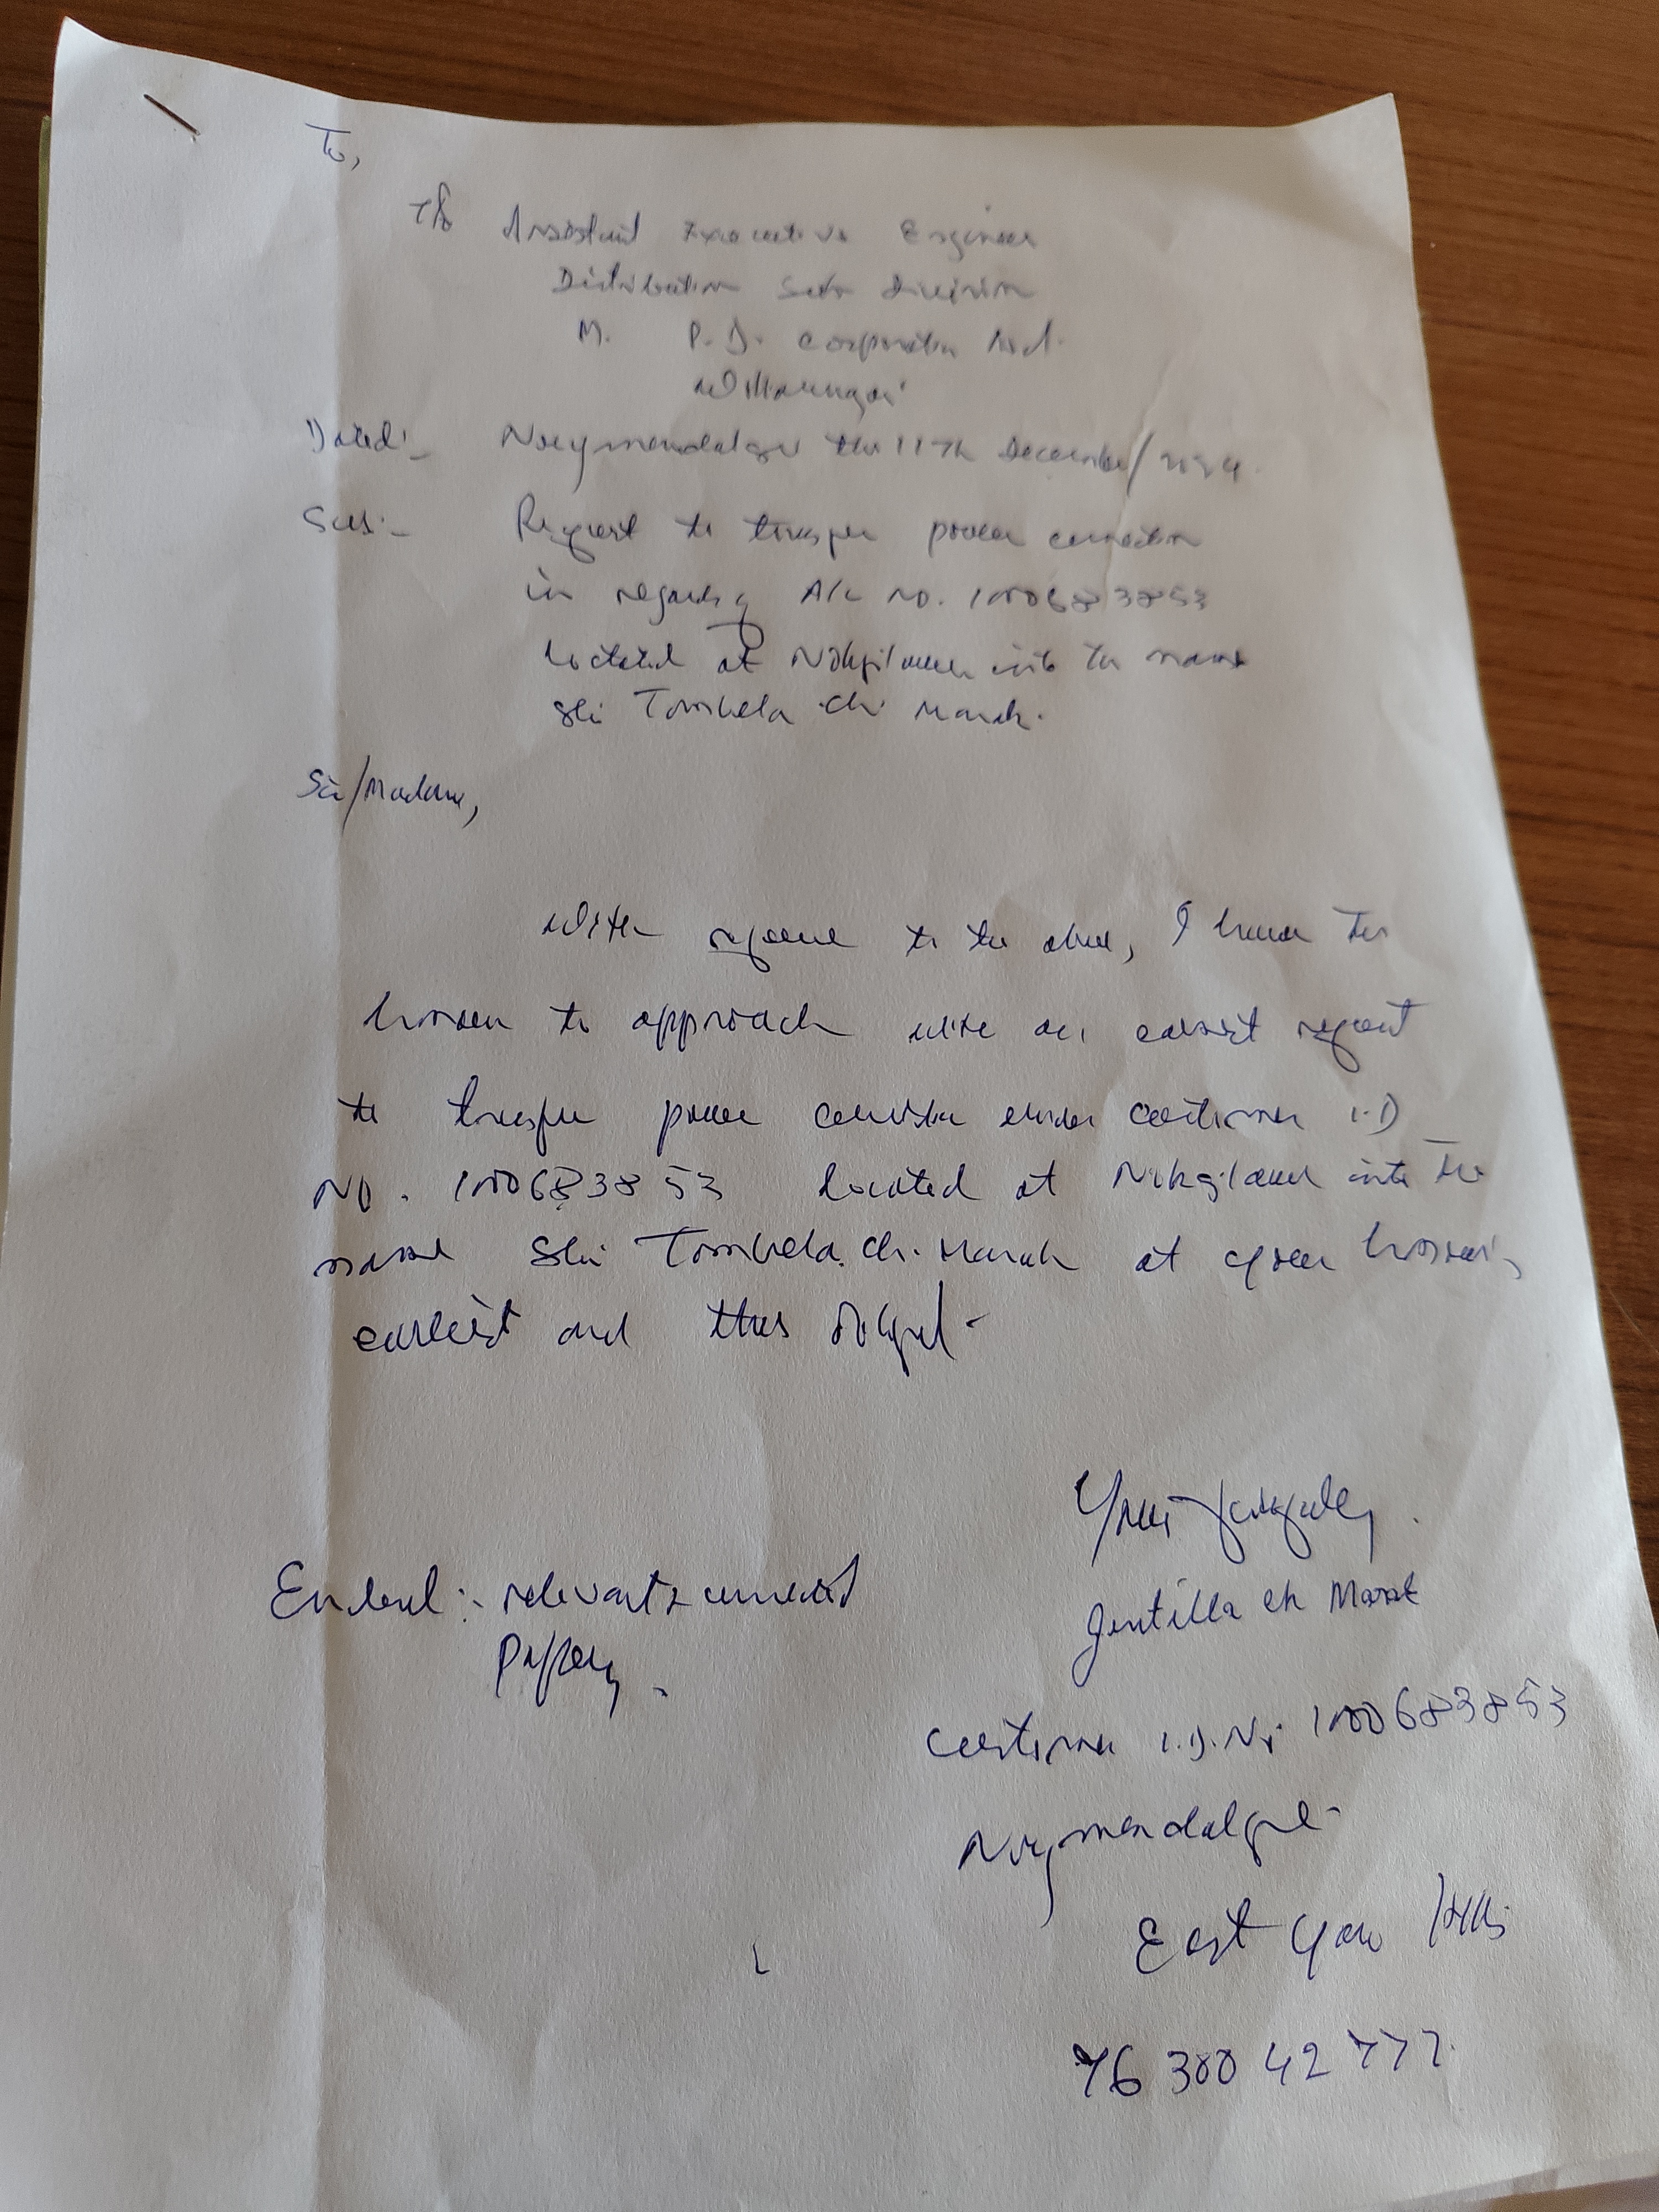 To,
The Assistant Executive Engineer
Distribution Sub Division
M. P.D. Corporation Ltd.
Williamnagar
Dated:- the 11th December/2024.
Sub:- Request to transfer power connection
in regards of A/c No. 1000683853
located at Nokgilawe into the name
Shri Tombela Ch. Marak.
Sir/Madam,
With reference to the above, I have the
honour to approach with an earnest request
to transfer power connection under customer I.D
No. 1000683853 located at Nokgilawe into the
name Shri Tombela. Ch. Marak at your honour's
earliest and thus oblige.
Yours faithfully,
Enclosed:- relevant connected
Papers.
Jentilla Ch Marak
Customer I.D. No 1000683853
East Garo Hills
76 300 42 777